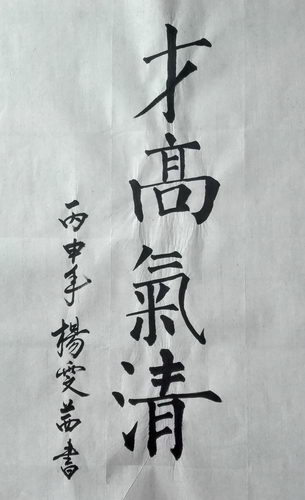 才高氣清
丙申年楊雯茜書